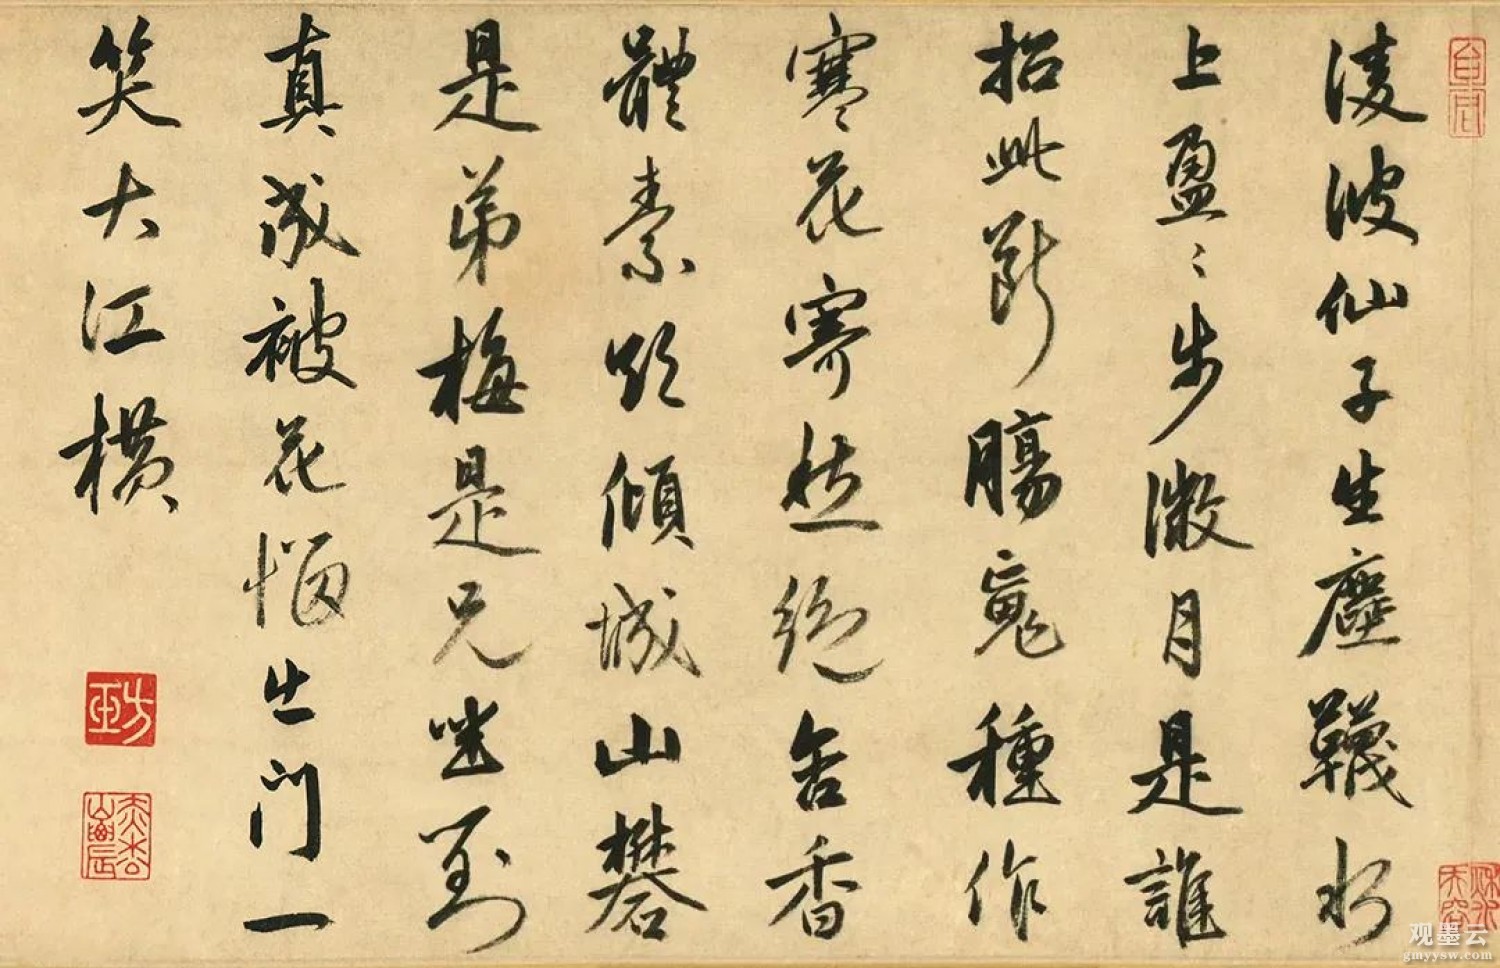 淩波仙子生塵韈水
上盈〻步微月是誰
招此斷腸魂種作
寒花寄愁絕含香
體素欲傾城山礬
是弟梅是兄坐對
真成被花惱出門一
笑大江橫
观墨云
gmyysw.com